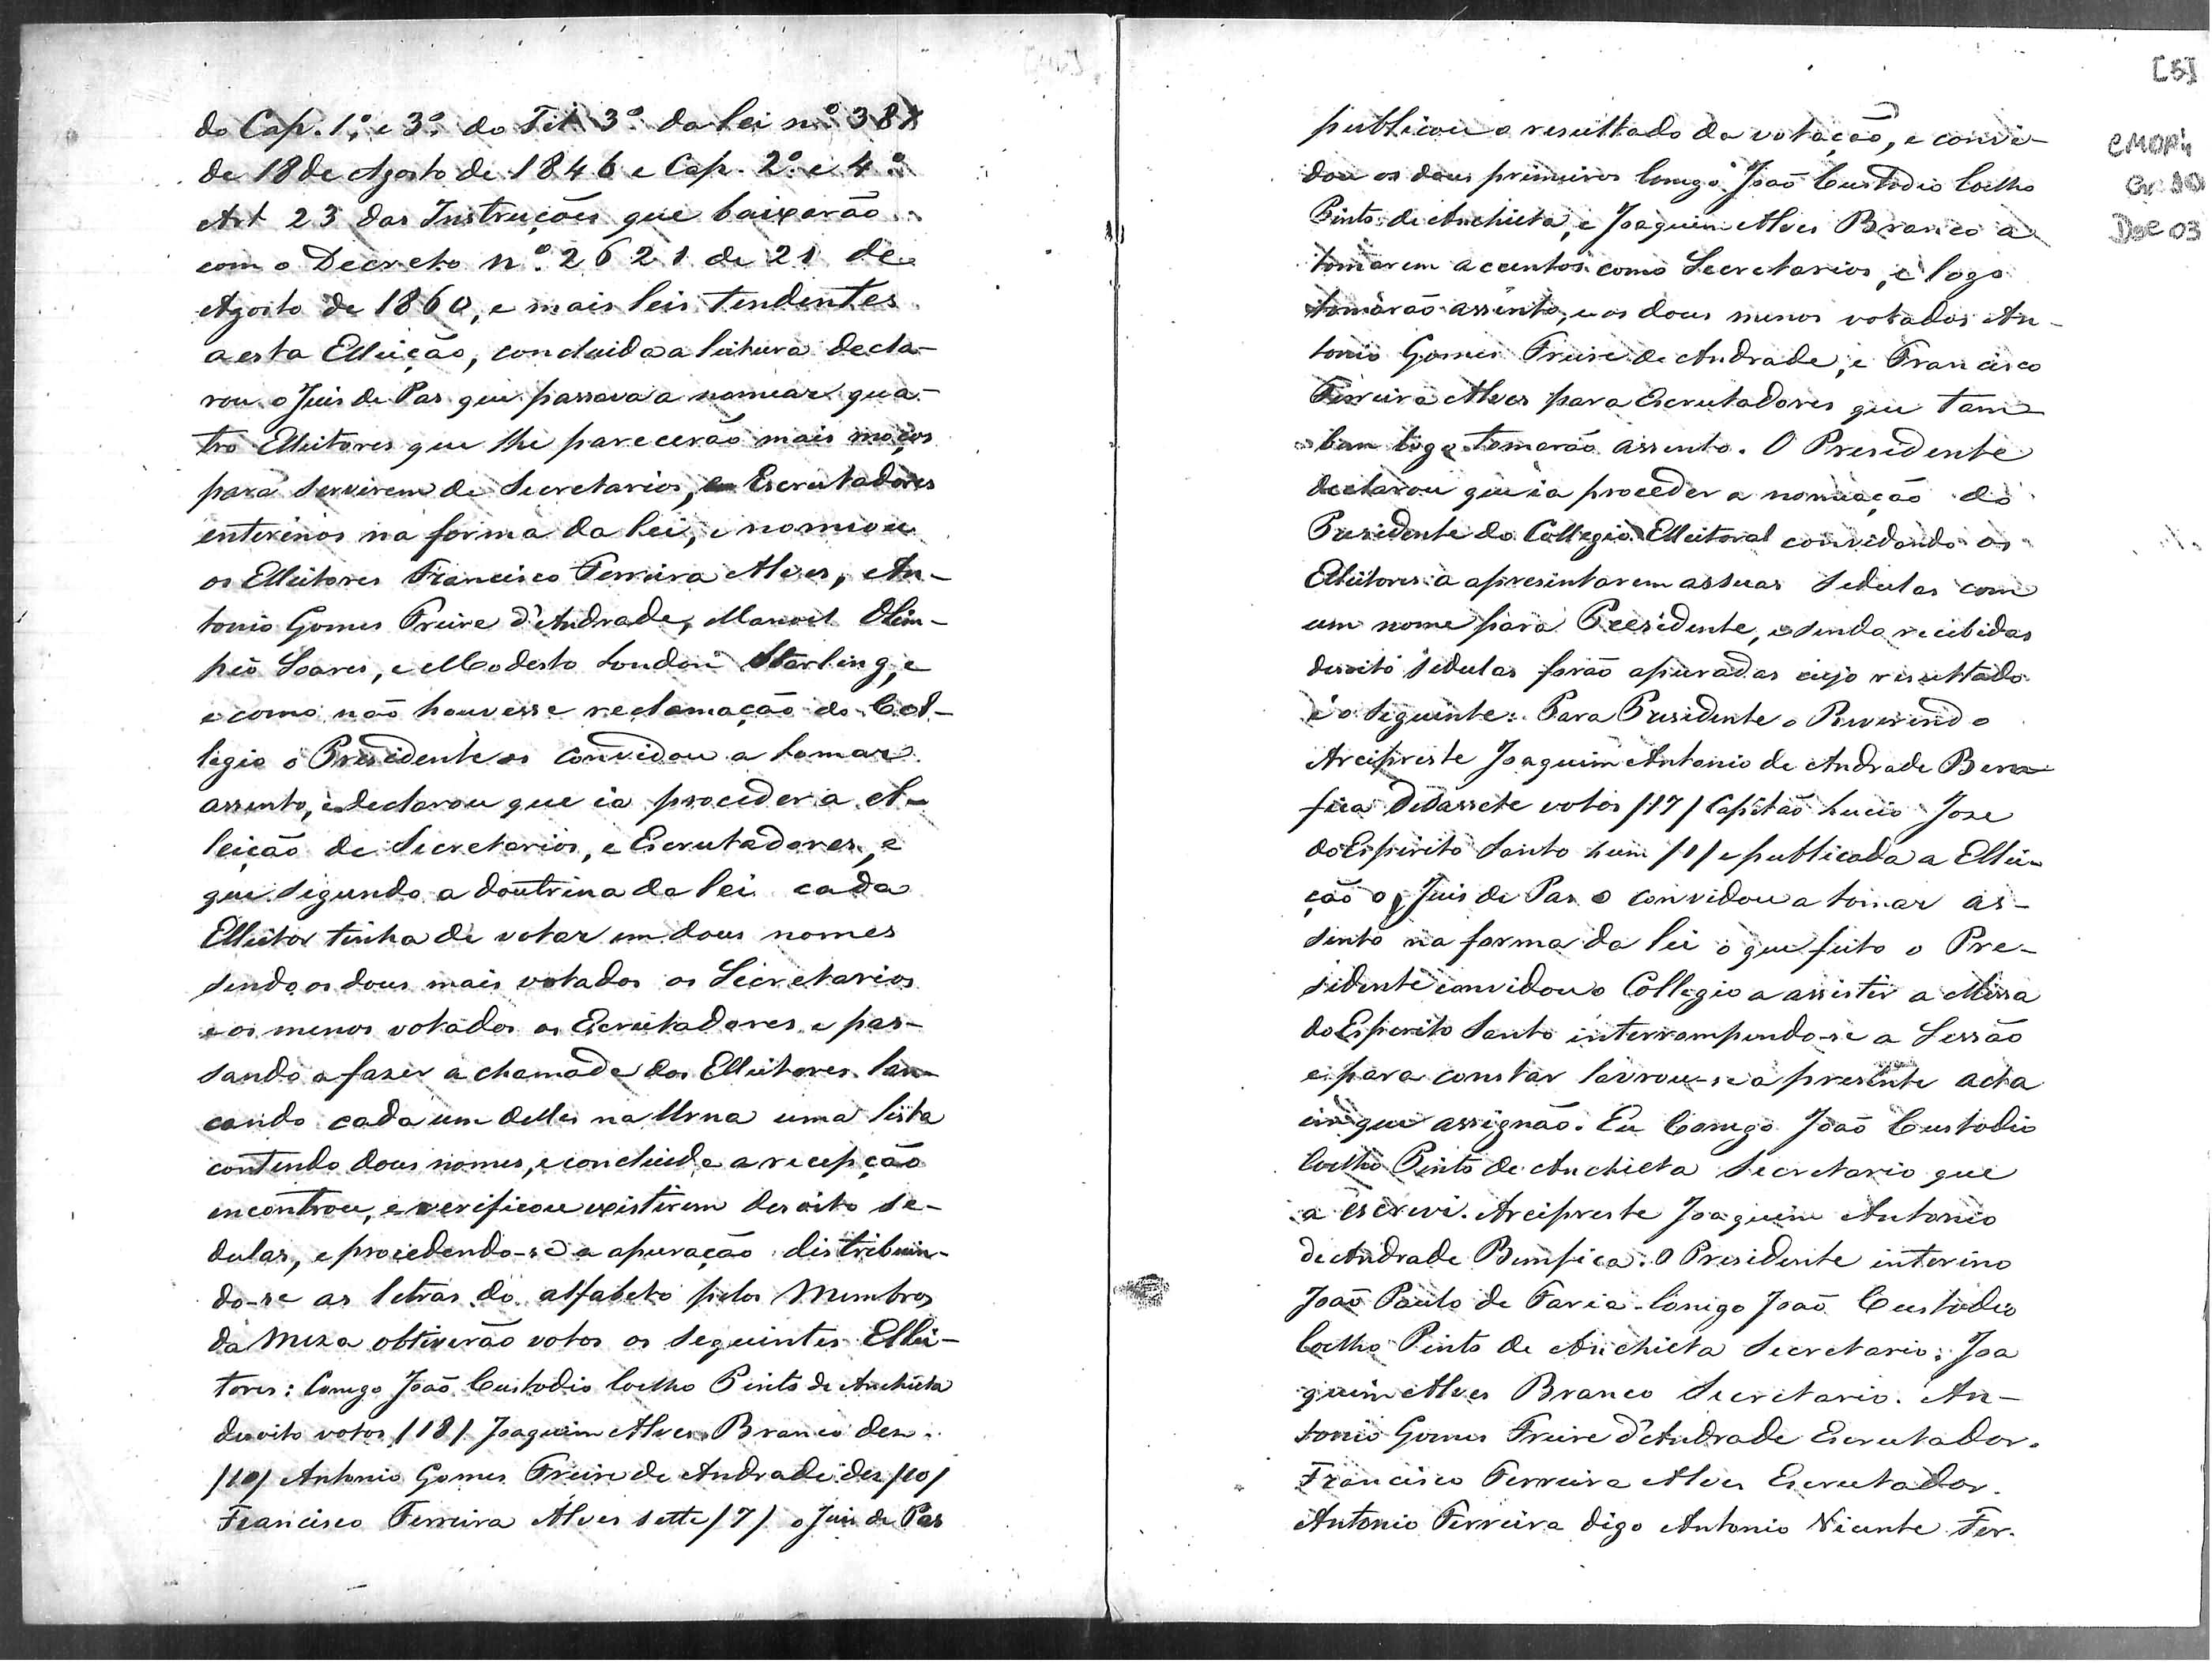 do Cap. 1.º e 3.º do Tit 3.º da lei nº 387
de 18 de Agosto de 1846 e Cap. 2.º e 4.º
Art 23 das Instruções que baixarão
com o Decreto nº. 2621 de 21 de
Agosto de 1860, e mais leis tendentes
a esta Elleição, concluida a leitura decla-
rou o Juis de Pas que passava a nomear qua-
tro Elleitores que lhe parecerão mais moços
para servirem de Secretarios, e Escrutadores
enterinos na forma da lei, e nomiou
os Elleitores Francisco Ferreira Alves, An-
tonio Gomes Freire d'Andrade, Manoel Olim-
pio Soares, e Modesto London Starling, e
e como não houvesse reclamação do Col-
legio o Presidente os convidou a tomar
assento, e declarou que ia proceder a el-
leição de Secretarios, e Escrutadores, e
que segundo a doutrina da lei cada
Elleitor tinha de votar em dous nomes
sendo os dous mais votados os Secretarios
e os menos votados os Escrutadores e pas-
sando a faser a chamada dos Elleitores lan-
cando cada um delles na Urna uma lista
contendo dous nomes, e concluida a recepção
encontrou, e verificou existirem desoito se-
dulas, e procedendo-se a apuração distribuin-
do-se as letras do alfabeto pelos Membros
da Meza obtiverão votos os seguintes Ellei-
tores: Conego João Custodio Coelho Pinto de Anchieta
desoito votos /18/ Joaquim Alves Branco des
/10/ Antonio Gomes Freire de Andrade des /10/
Francisco Ferreira Alves sette /7/ o Juis de Pas
[5]
CMOP
Doc 03
publicou o resultado da votação, e convi-
dou os dous primeiros Conego João Custodio Coelho
Pinto de Anchieta, e Joaquim Alves Branco a
tomarem accentos como Secretarios, e logo
tomarão assento, e os dous menos votados An-
tonio Gomes Freire de Andrade, e Francisco
Ferreira Alves para Escrutadores que tam
bem logo tomarão assento. O Presidente
declarou que ia proceder a nomiação do
Presidente do Collegio Elleitoral convidando os
Elleitores a apresintarem as suas sedulas com
um nome para Presidente, e sendo recibidas
desoito sedulas forão apuradas cujo resultado
é o seguinte: Para Presidente o Reverendo
Arcipreste Joaquim Antonio de Andrade Bem
fica desassete votos /17/ Capitão Lucio Jose
do Espirito Santo hum /1/ e publicada a Ellei-
ção o Juis de Pas o convidou a tomar as-
sento na forma da lei o que feito o Pre-
sidente convidou o Collegio a assistir a Missa
do Esperito Santo interrompendo-se a Sessão
e para constar lavrou-se a presente acta
em que assignão. Eu Conego João Custodio
Coelho Pinto de Anchieta Secretario que
a escrevi. Arcipreste Joaquim Antonio
de Andrade Bemfica. O Presidente interino
João Paulo de Faria. Conigo João Custodio
Coelho Pinto de Anchieta Secretario. Joa
quim Alves Branco Secretario. An-
tonio Gomes Freire d'Andrade Escrutador.
Francisco Ferreira Alves Escrutador.
Antonio Ferreira digo Antonio Vicente Fer.